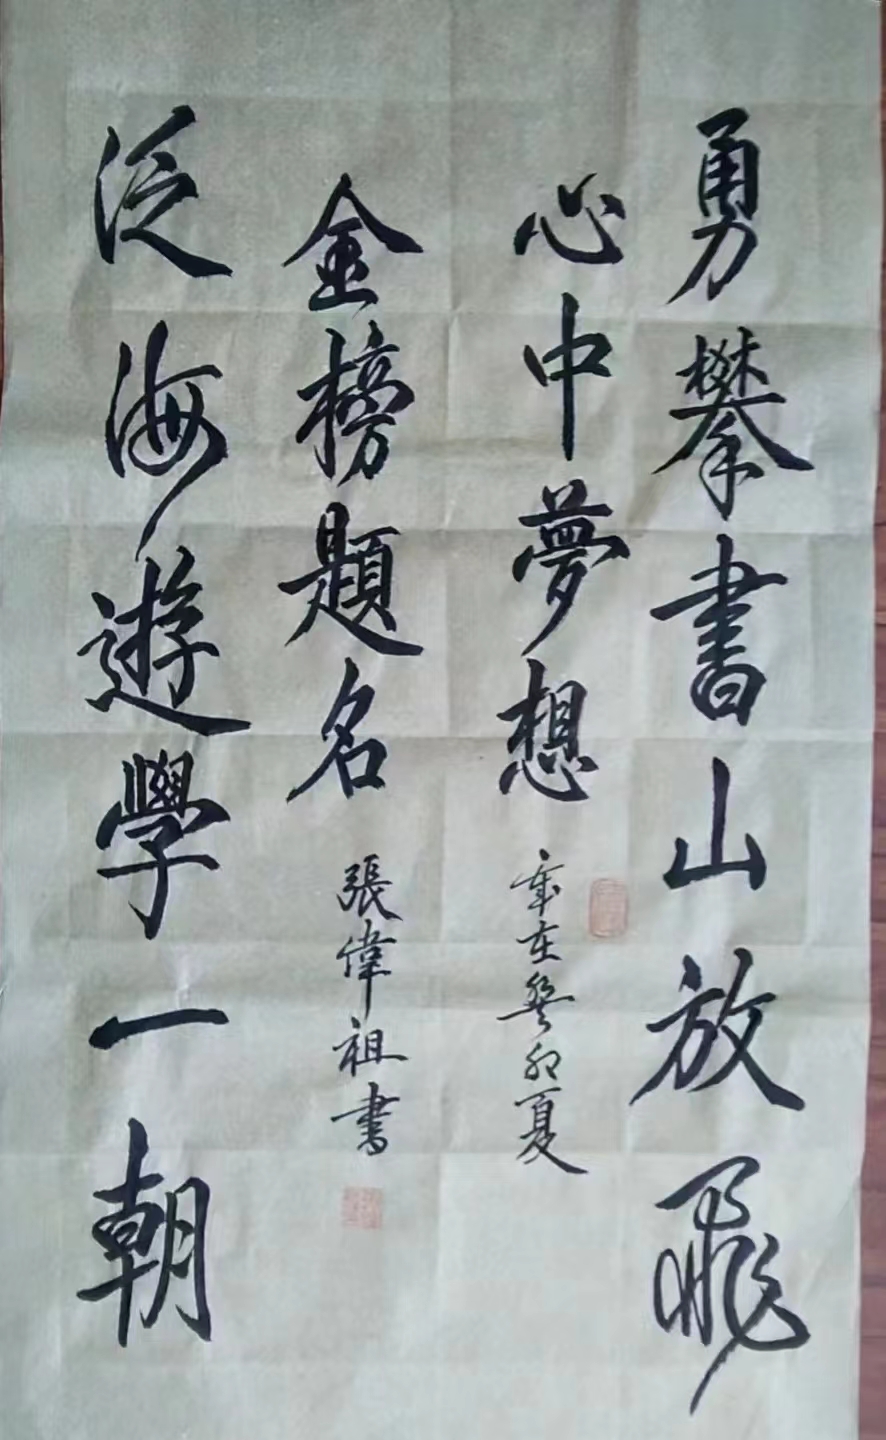 勇攀書山放飛
心中夢想
歲在癸卯夏
泛海遊學一朝
金榜題名
張偉祖書